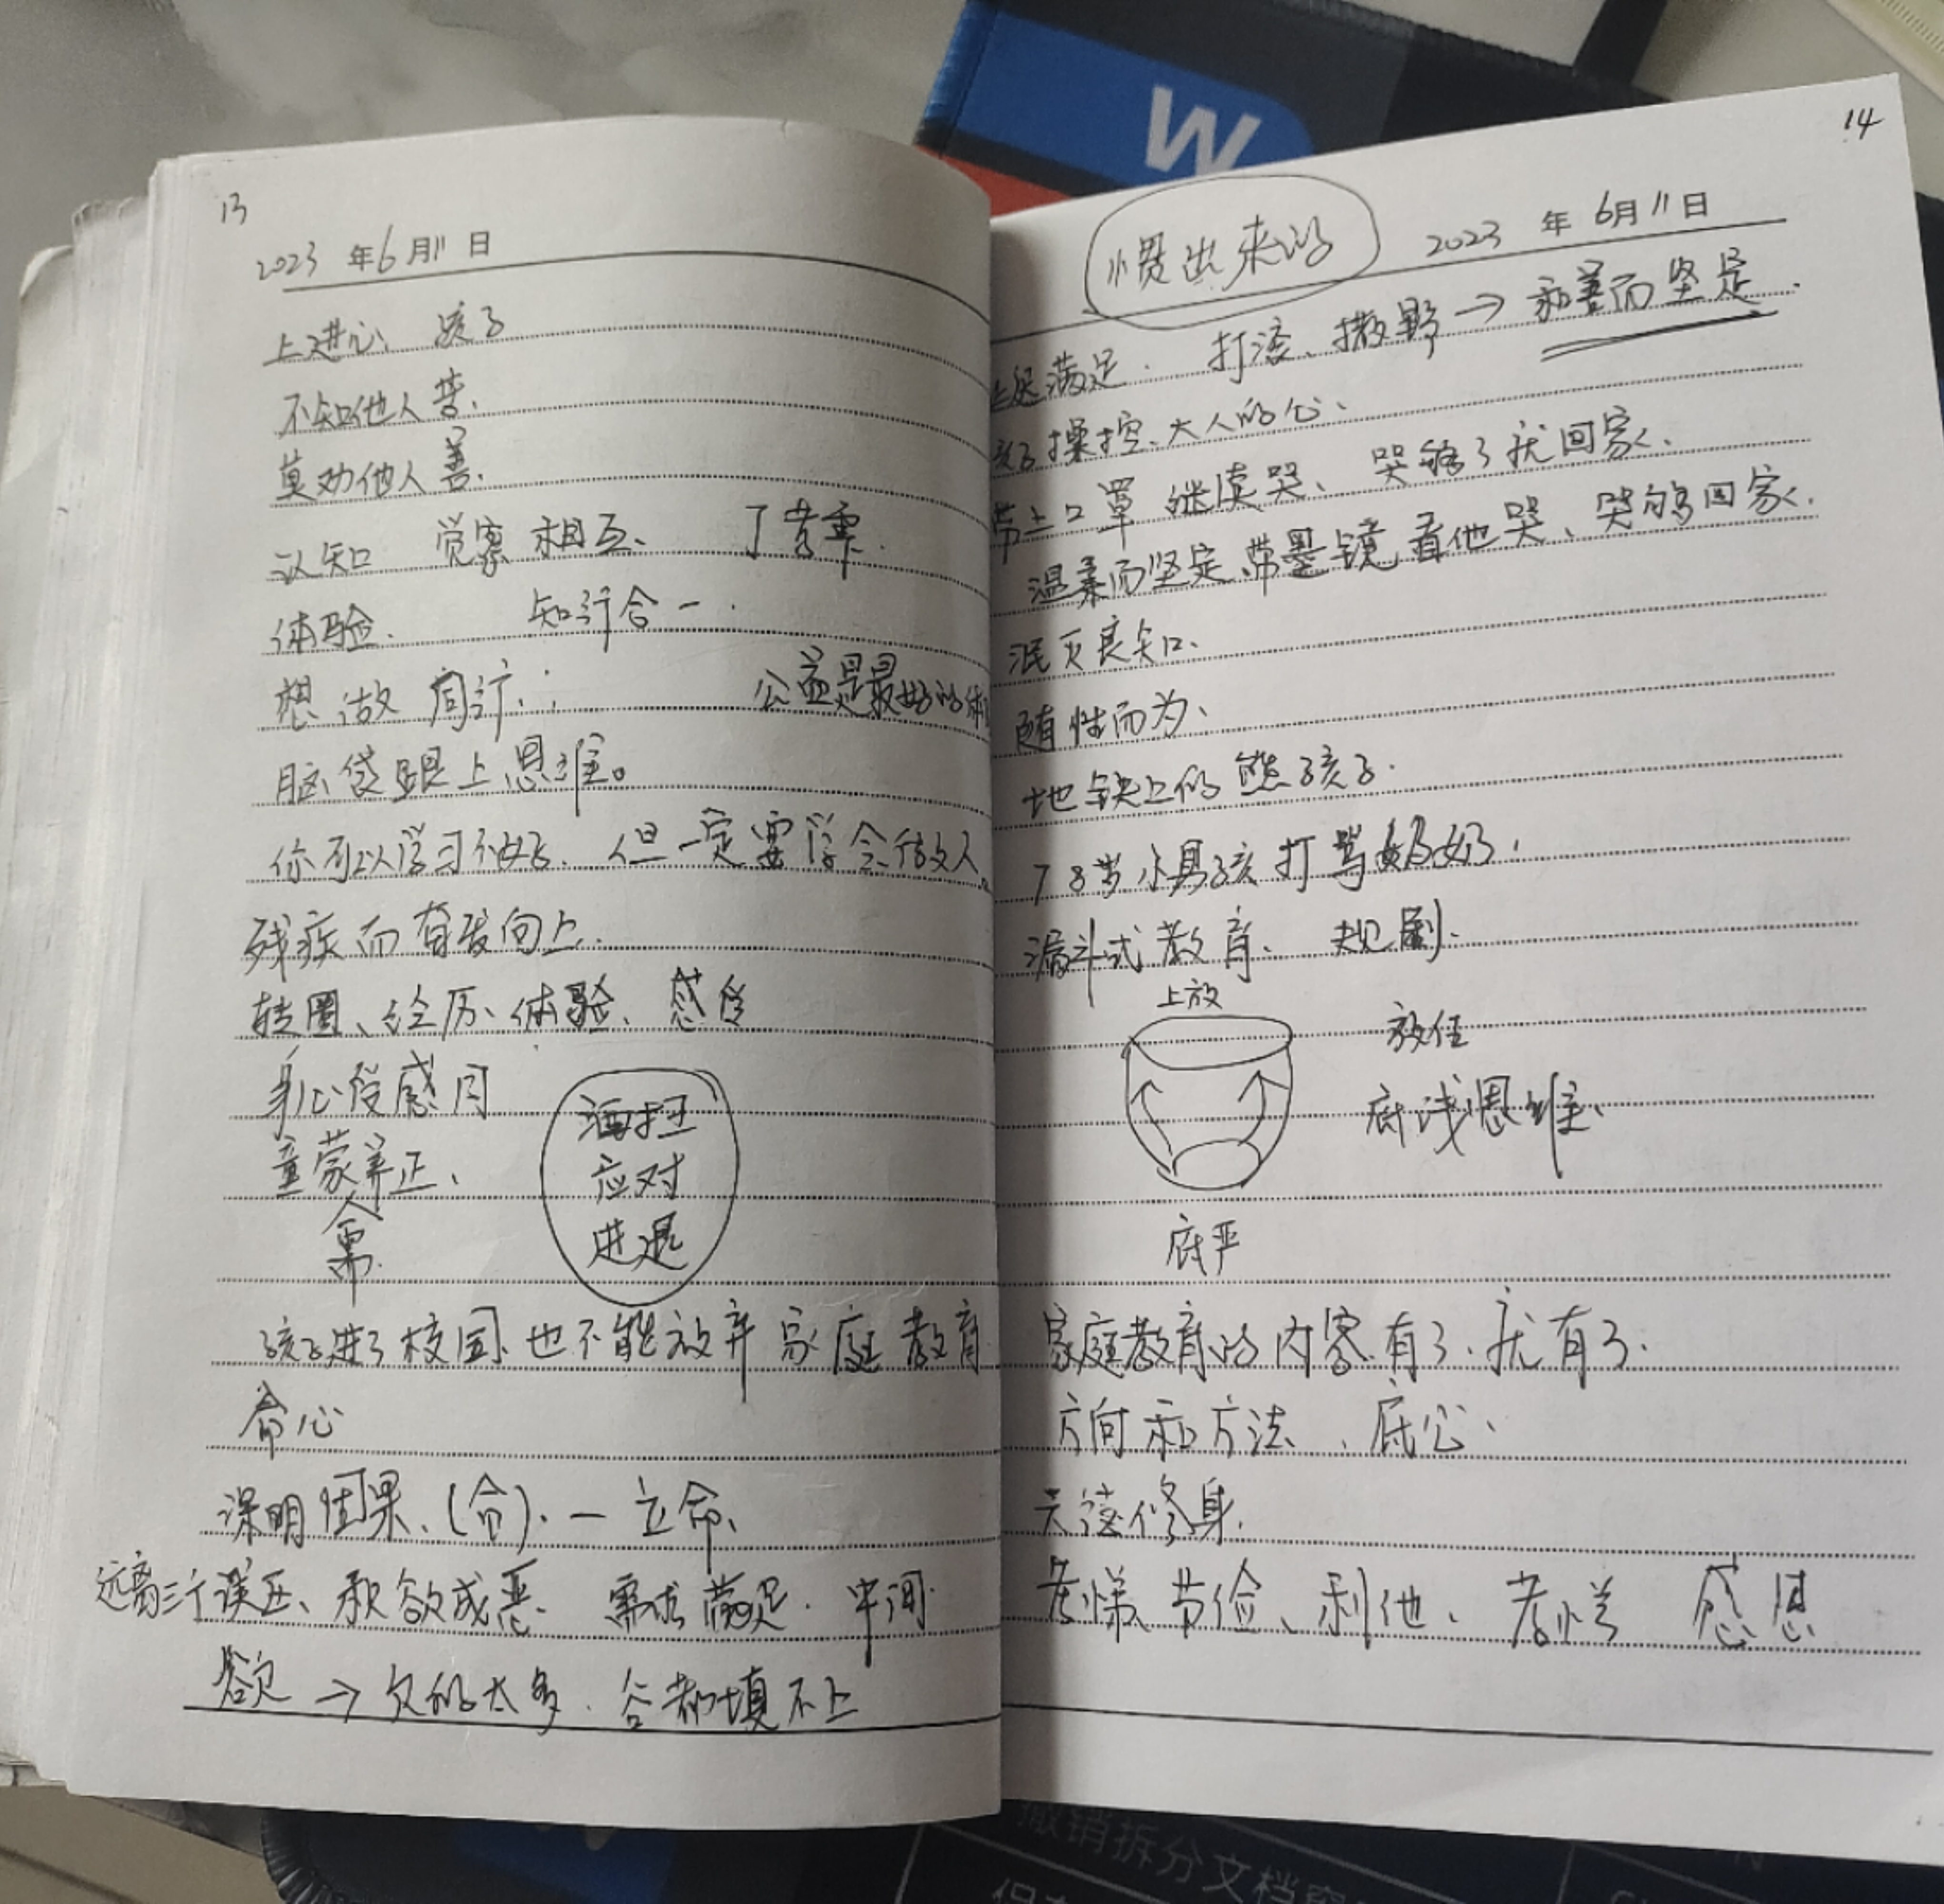 13
2023 年 6 月 11 日
上进心、孩子
不知他人苦、
莫劝他人善、
认知 觉察 相互、
体验、 知行合一.
想 做 同行、
公益是最好的体
脑袋跟上思维。
你可以学习不好、但一定要学会做人。
残疾而奋发向上.
转圈、经历、体验、感受
身心受感同
童蒙养正、
需.
洒扫
应对
进退
孩子进了校园、也不能放弃家庭教育
命心
深明因果、(合)、一 立命、
远离三个误区、积欲成恶、需求满足. 中间
欲 → 欠的太多. 谷都填不上
14
惯出来的
2023 年 6月 11 日
满足. 打滚、撒野 → 和善而坚定.
孩子操控、大人的心、
带上口罩 继续哭、哭够了就回家、
温柔而坚定、带墨镜看他哭、哭够回家、
泯灭良知、
随性而为、
地铁上的熊孩子.
7 8岁小男孩打骂奶奶.
漏斗式教育、规则.
上放
放任
底线思维、
底严
家庭教育的内容有了、就有了.
方向和方法、底公、
修身.
孝悌、节俭、利他、孝悌 感恩